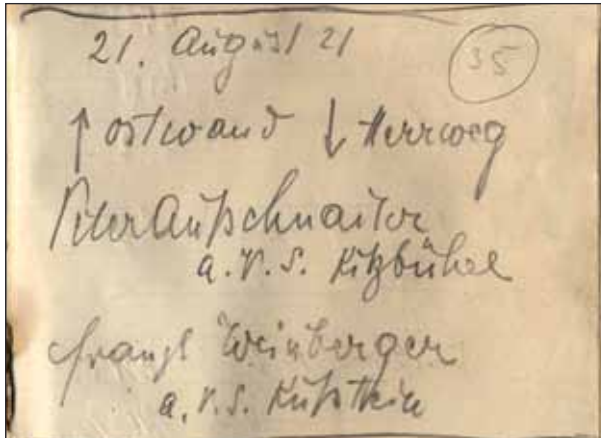 21. August 21 35
↑ Ostwand ↓ Herrweg
Peter Aufschnaiter
a.V.S. Kitzbühel
Franzl Weinberger
a.V.S. Kufstein